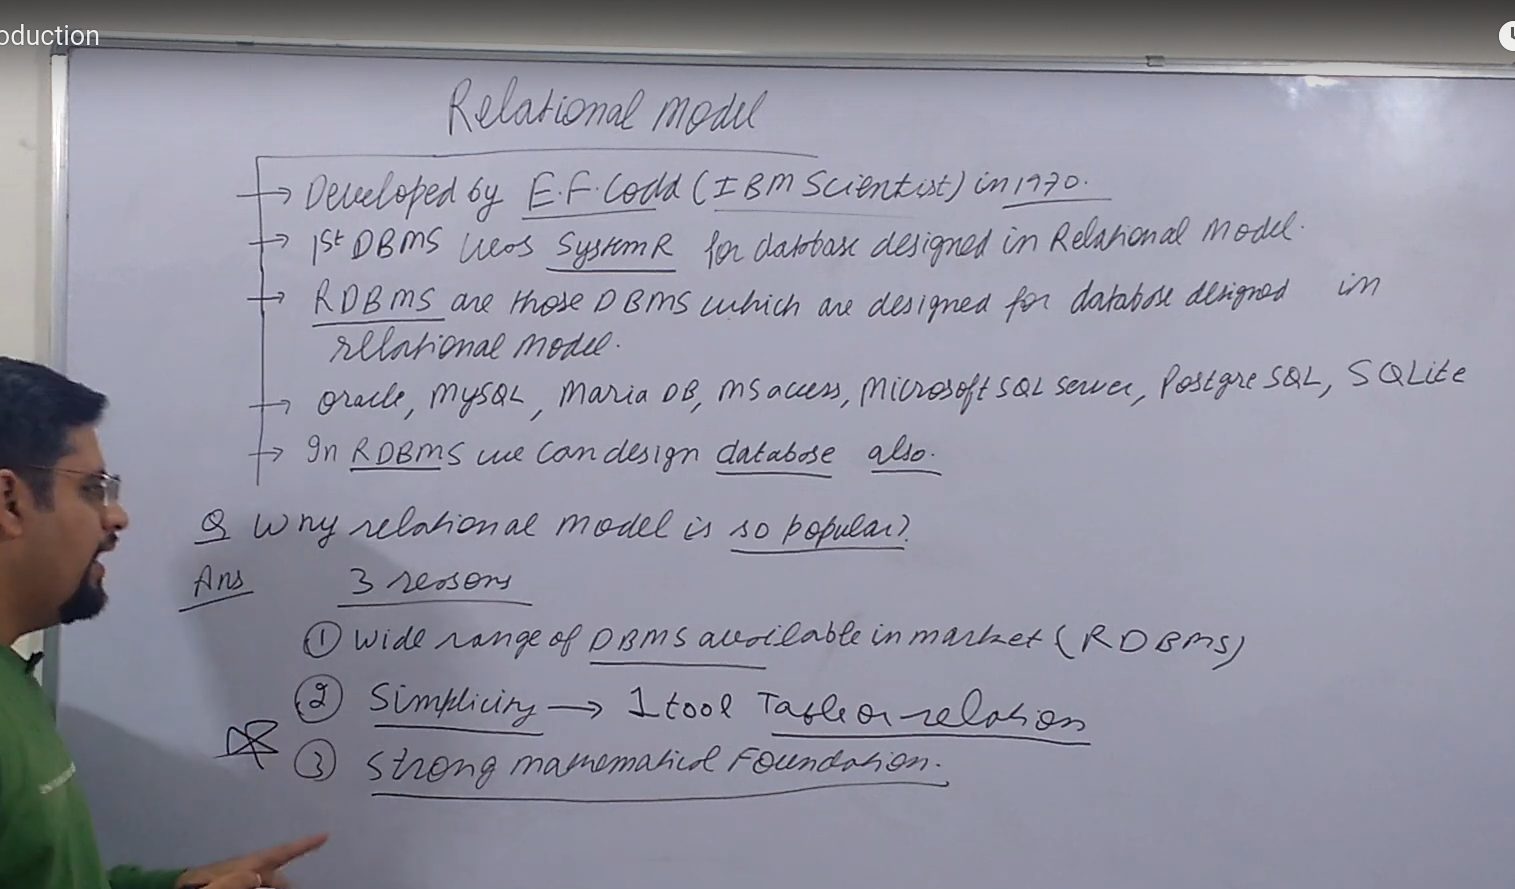 oduction
Relational Model
→ Developed by E.F. Codd (IBM Scientist) in 1970.
→ 1st DBMS was System R for database designed in Relational Model.
→ RDBMS are those DBMS which are designed for database designed in
relational model.
→ oracle, MySQL, Maria DB, MS access, Microsoft SQL server, PostgreSQL, SQLite
→ In RDBMS we can design database also.
Q Why relational model is so popular?
Ans 3 reasons
① wide range of DBMS available in market (RDBMS)
② Simplicity → 1 tool Table or relation
③ strong mathematical Foundation.